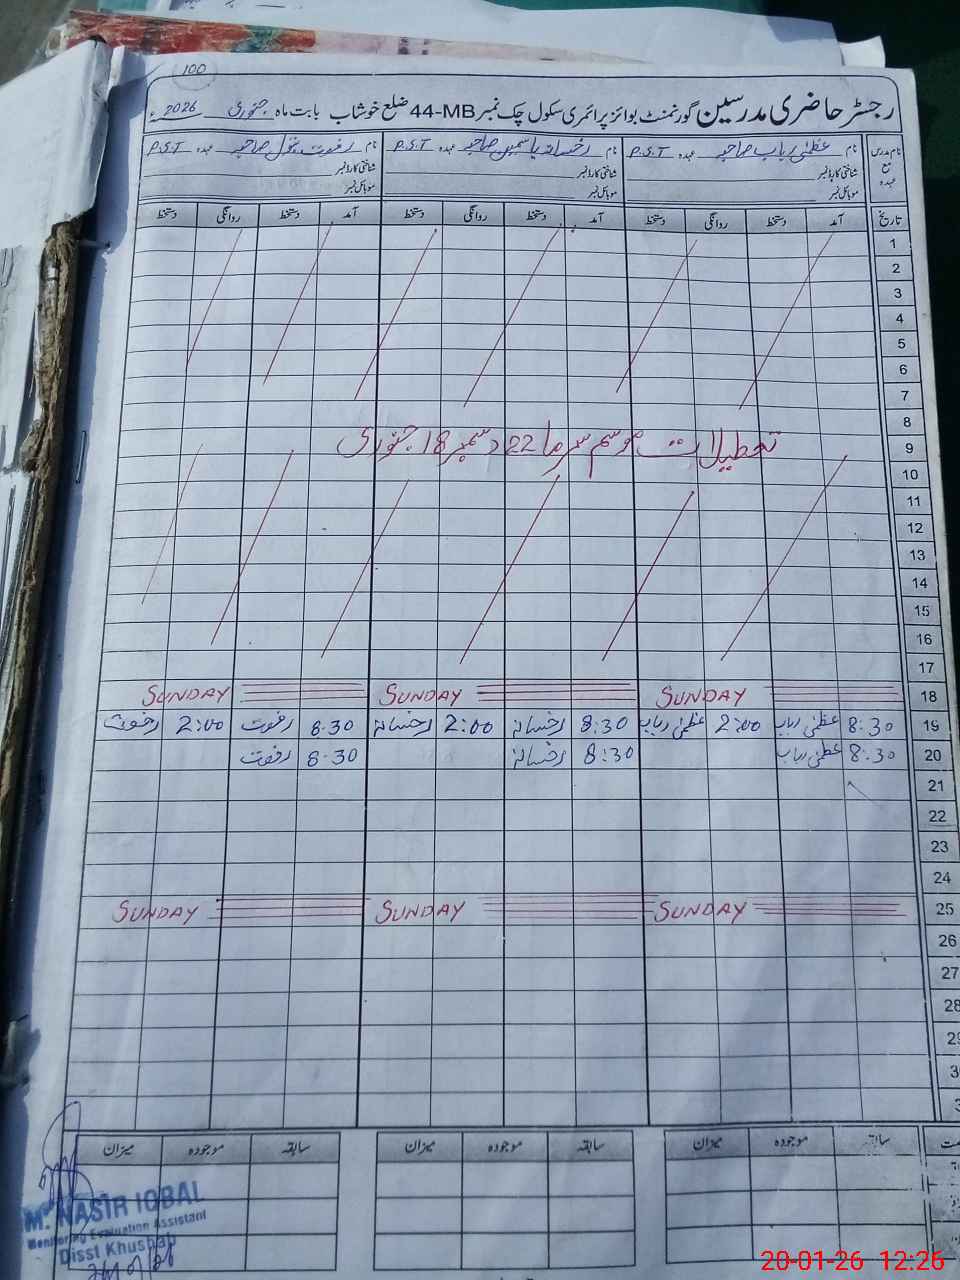 100
رجسٹر حاضری مدرسین گورنمنٹ بوائز پرائمری سکول چک نمبر 44-MB ضلع خوشاب بابت ماہ جنوری 2026ء
نام مدرس مع عہدہ نام عظمیٰ رباب صاحبہ عہدہ P.S.T نام رخسانہ یاسمین صاحبہ عہدہ P.S.T نام رفعت بتول صاحبہ عہدہ P.S.T
شناختی کارڈ نمبر شناختی کارڈ نمبر شناختی کارڈ نمبر
موبائل نمبر موبائل نمبر موبائل نمبر
تاریخ آمد دستخط روانگی دستخط آمد دستخط روانگی دستخط آمد دستخط روانگی دستخط
1
2
3
4
5
6
7
8
9 تعطیلات موسم سرما 22 دسمبر 18 جنوری
10
11
12
13
14
15
16
17
18 SUNDAY SUNDAY SUNDAY
19 8:30 عظمیٰ رباب 2:00 عظمیٰ رباب 8:30 رخسانہ 2:00 رخسانہ 8:30 رفعت 2:00 رفعت
20 8:30 عظمیٰ رباب 8:30 رخسانہ 8:30 رفعت
21
22
23
24
25 SUNDAY SUNDAY SUNDAY
26
27
28
29
سابقہ موجودہ میزان سابقہ موجودہ میزان سابقہ موجودہ میزان
M. NASIR IQBAL
Monitoring Evaluation Assistant
Disst Khushab
20-01-26 12:26